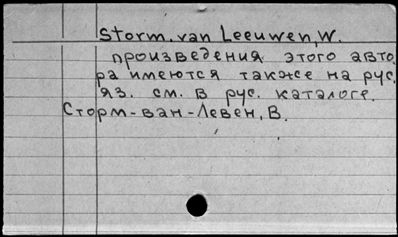 Storm. van Leeuwen, W.
произведения этого авто
ра имеются также на рус.
яз. см. в рус. каталоге.
Сторм-ван-Левен, В.